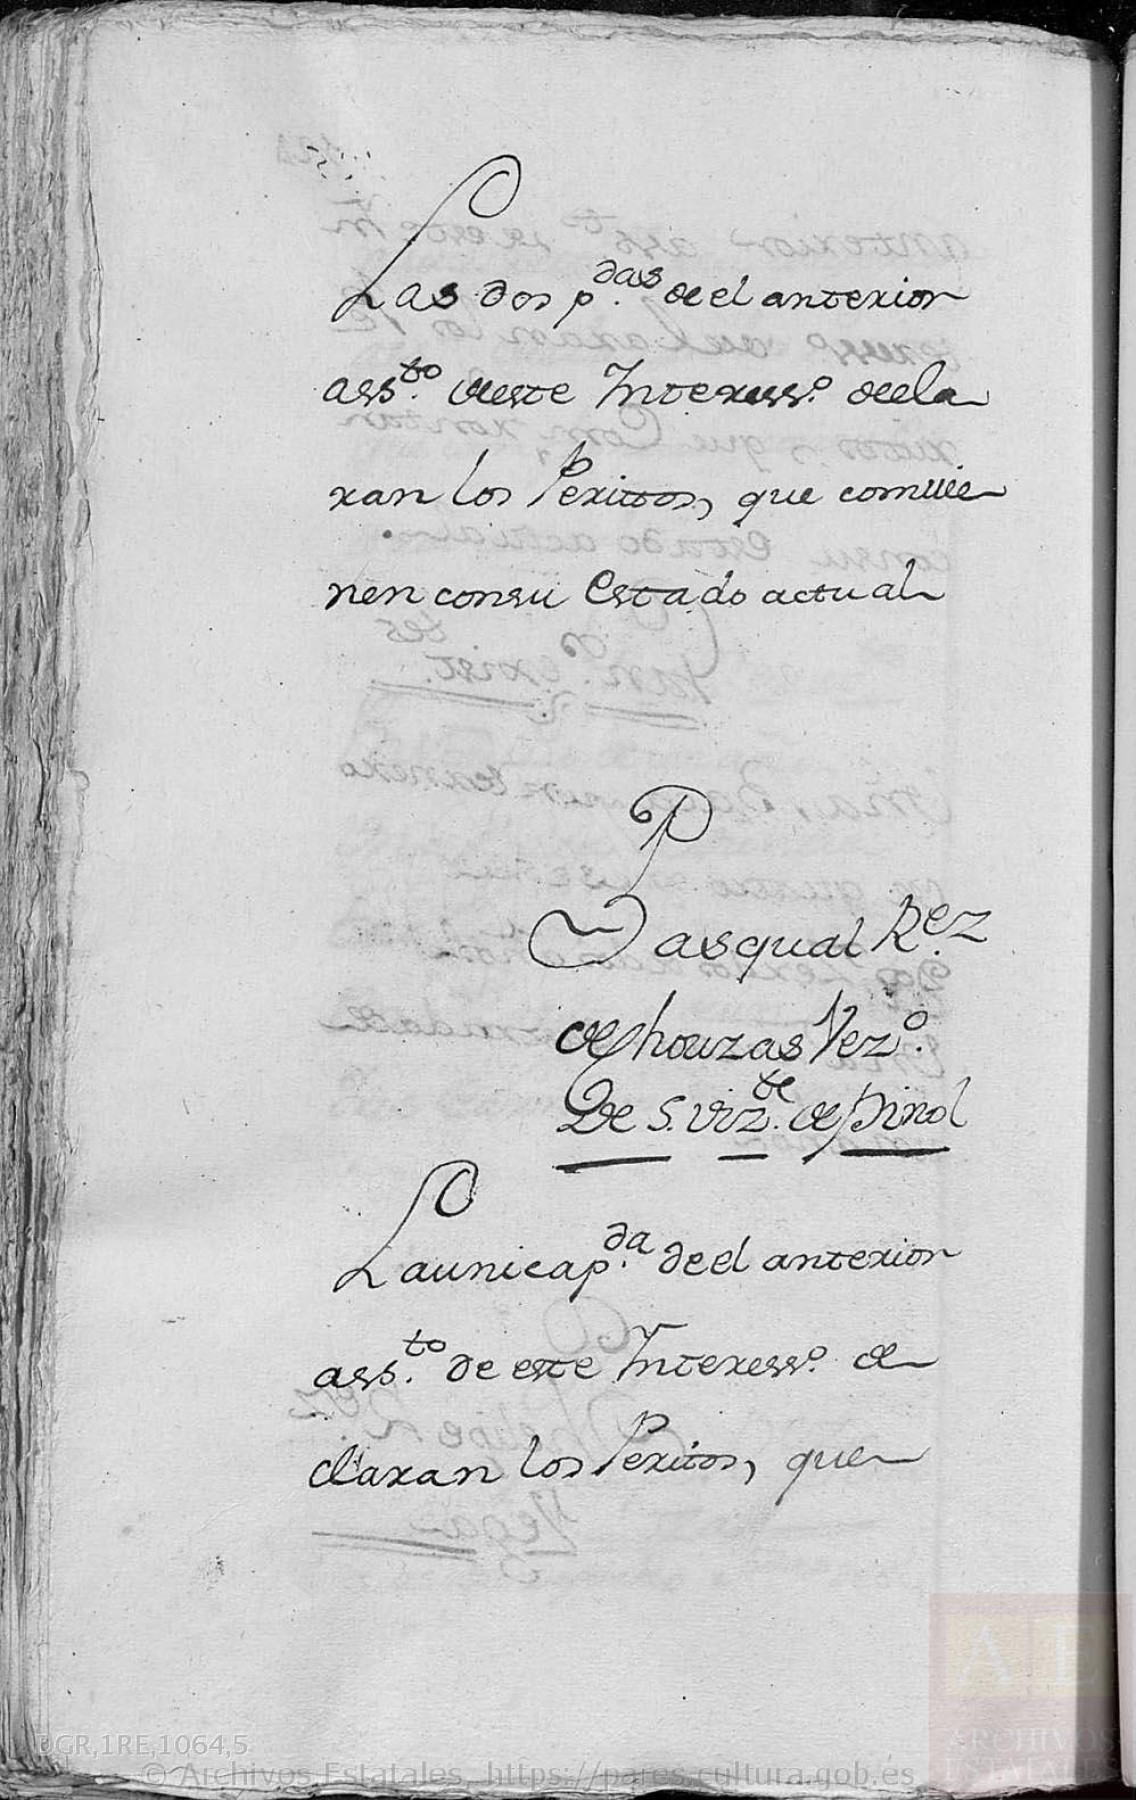 Las dos p.das de el anterior
ass.to de este Interess.o decla
ran los Perittos, que comvie
nen con su Estado actual
P
Pasqual R.ez
de houzas Vez.o
De S. Viz.te de Pinol
La unica p.da de el anterior
ass.to de este Interess.o de
claran los Peritos, que
UGR,1RE,1064,5
© Archivos Estatales, https://pares.cultura.gob.es
AE
ARCHIVOS
ESTATALES